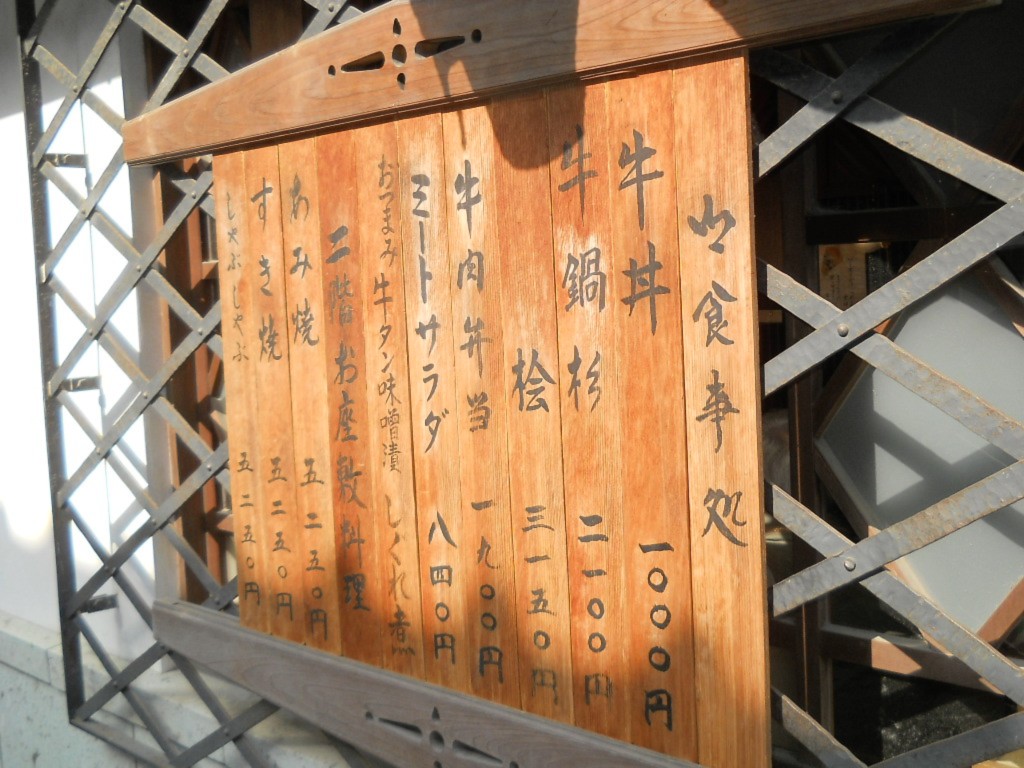 御食事処
牛丼 一〇〇〇円
牛鍋 杉 二一〇〇円
桧 三一五〇円
牛肉弁当 一九〇〇円
ミートサラダ 八四〇円
おつまみ牛タン味噌漬 しぐれ煮
二階お座敷料理
あみ焼 五二五〇円
すき焼 五二五〇円
しゃぶしゃぶ 五二五〇円